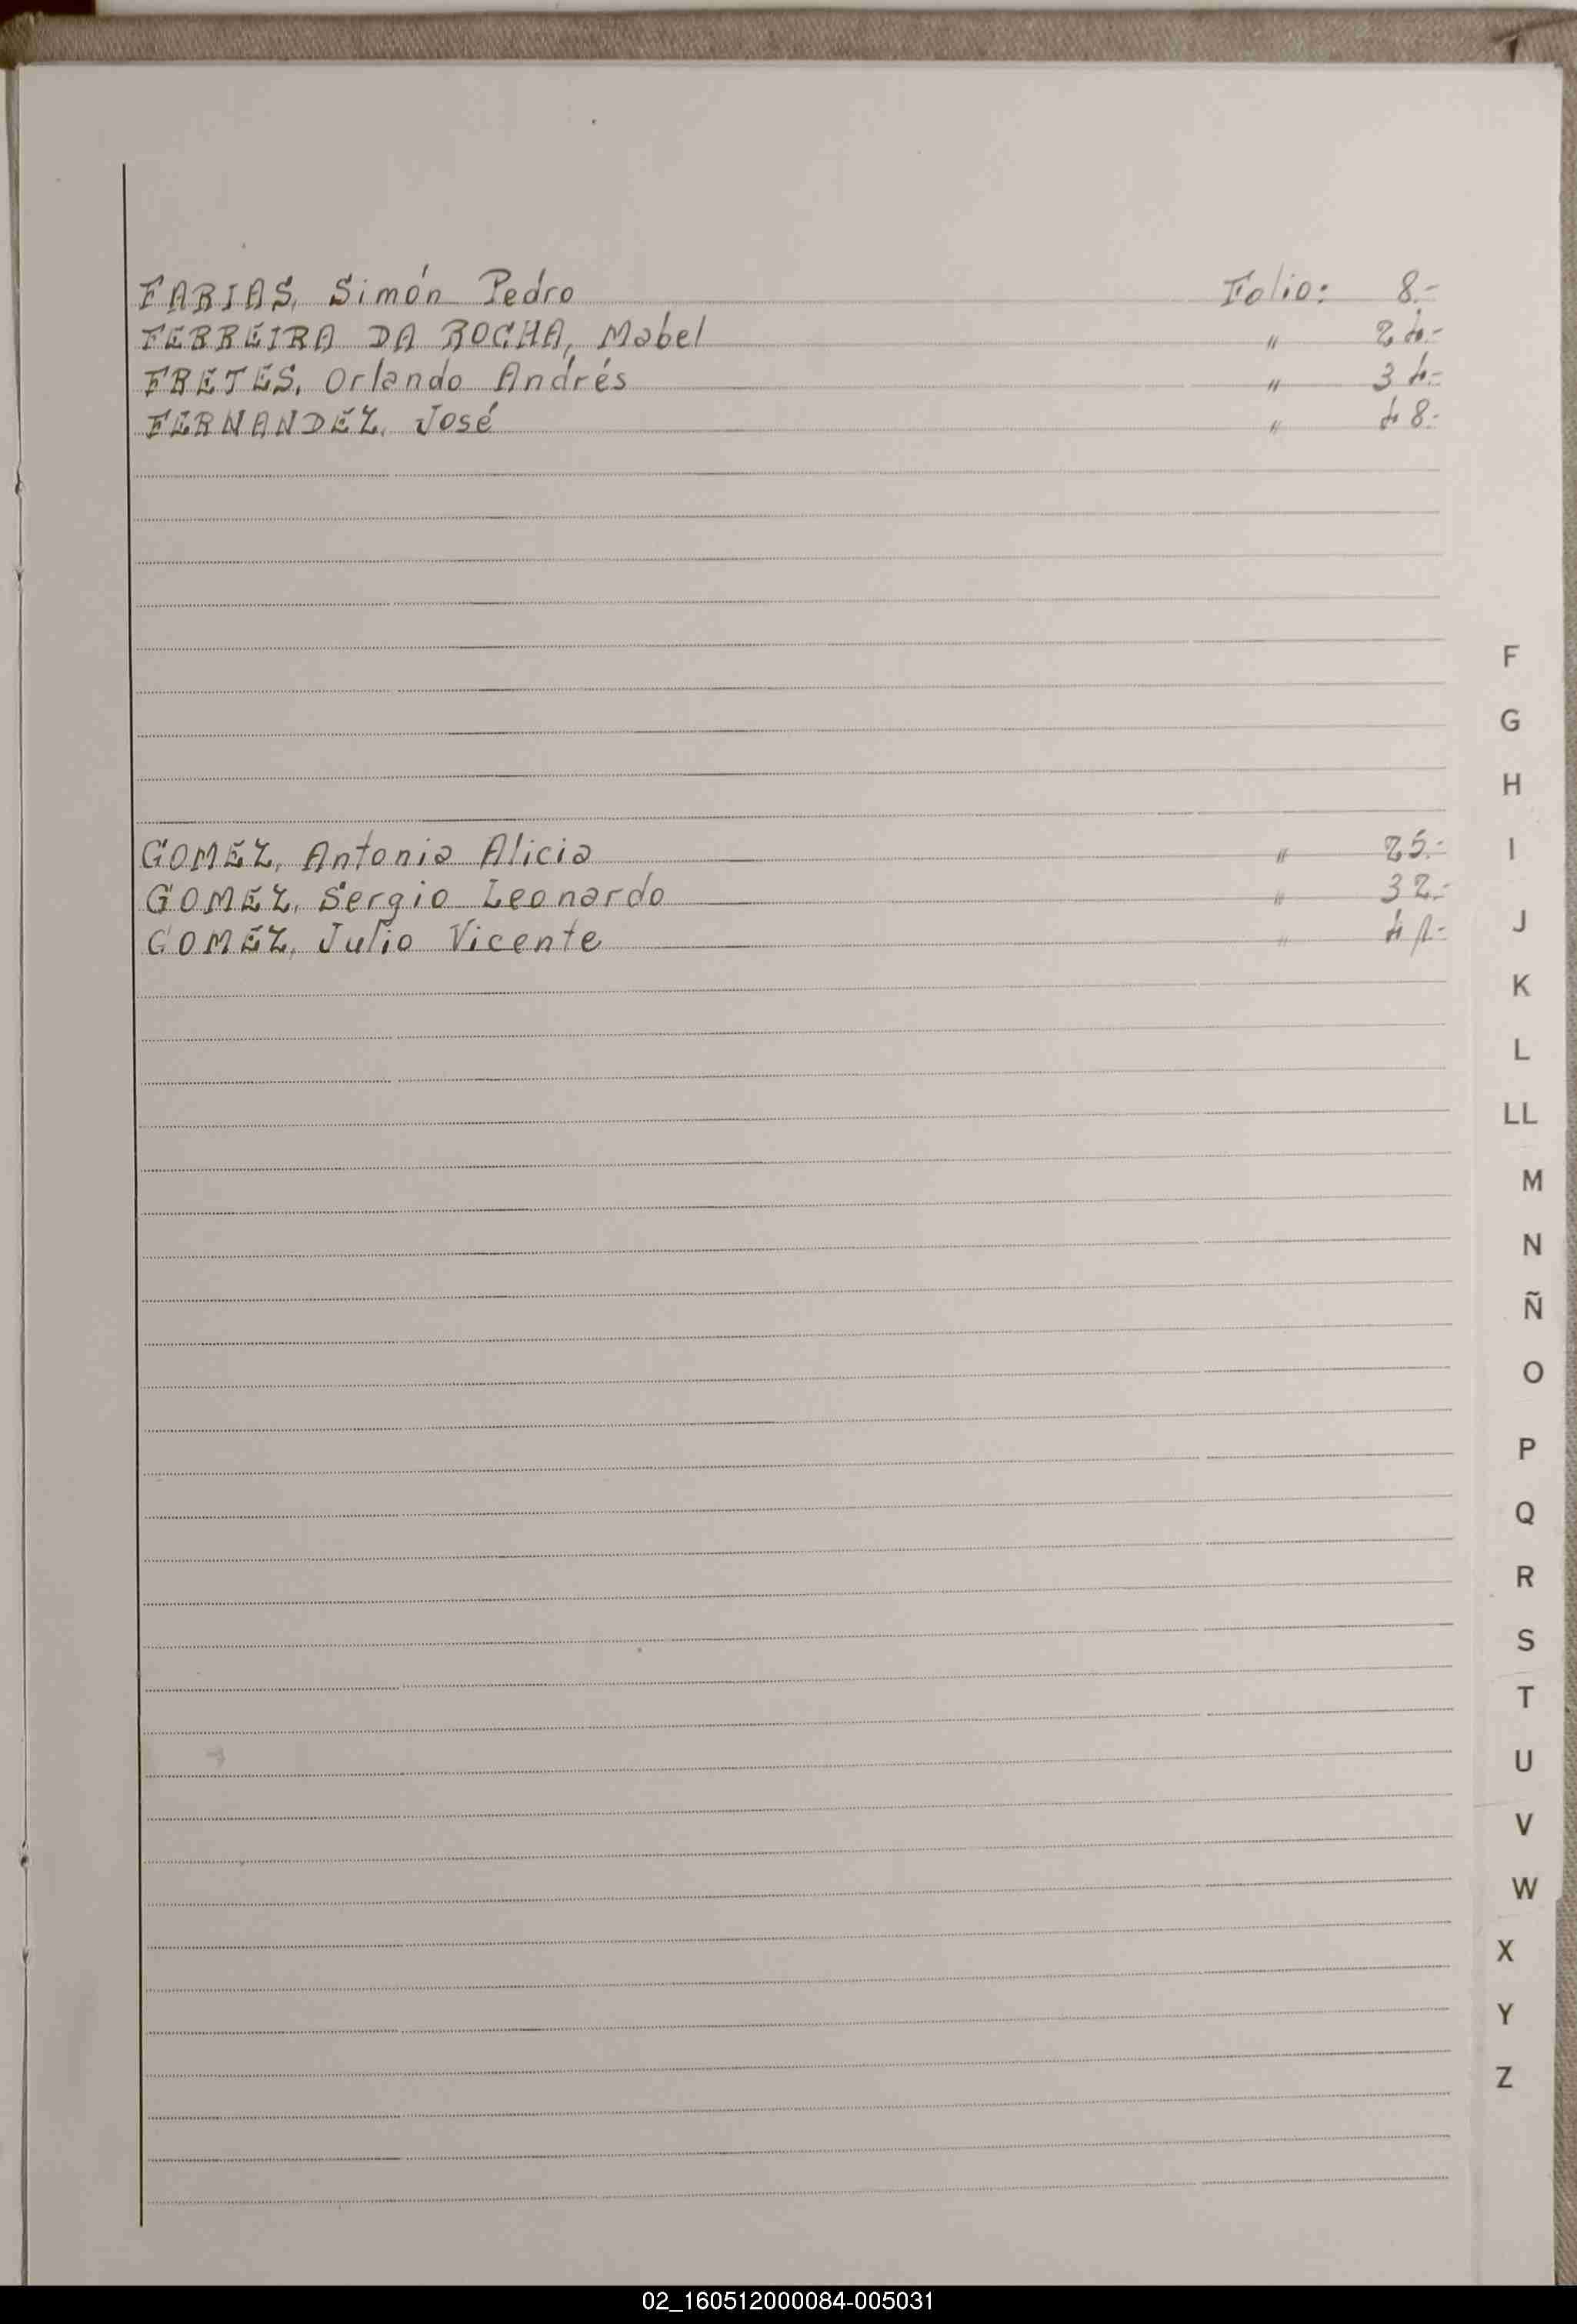 FARIAS, Simón Pedro Folio: 8.-
FERREIRA DA ROCHA, Mabel " 24.-
FRETES, Orlando Andrés " 34.-
FERNANDEZ, José " 48.-
F
G
H
GOMEZ, Antonia Alicia " 25.- I
GOMEZ, Sergio Leonardo " 32.-
GOMEZ, Julio Vicente " 41.- J
K
L
LL
M
N
Ñ
O
P
Q
R
S
T
U
V
W
X
Y
Z
02_160512000084-005031